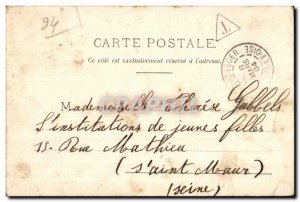 94
J.
CARTE POSTALE.
Ce côté est exclusivement réservé à l'adresse.
Mademoiselle Thérèse Gobbels
S'institutions de jeunes filles
15- Rue Mathieu
(S'aint Maur)
(Seine)